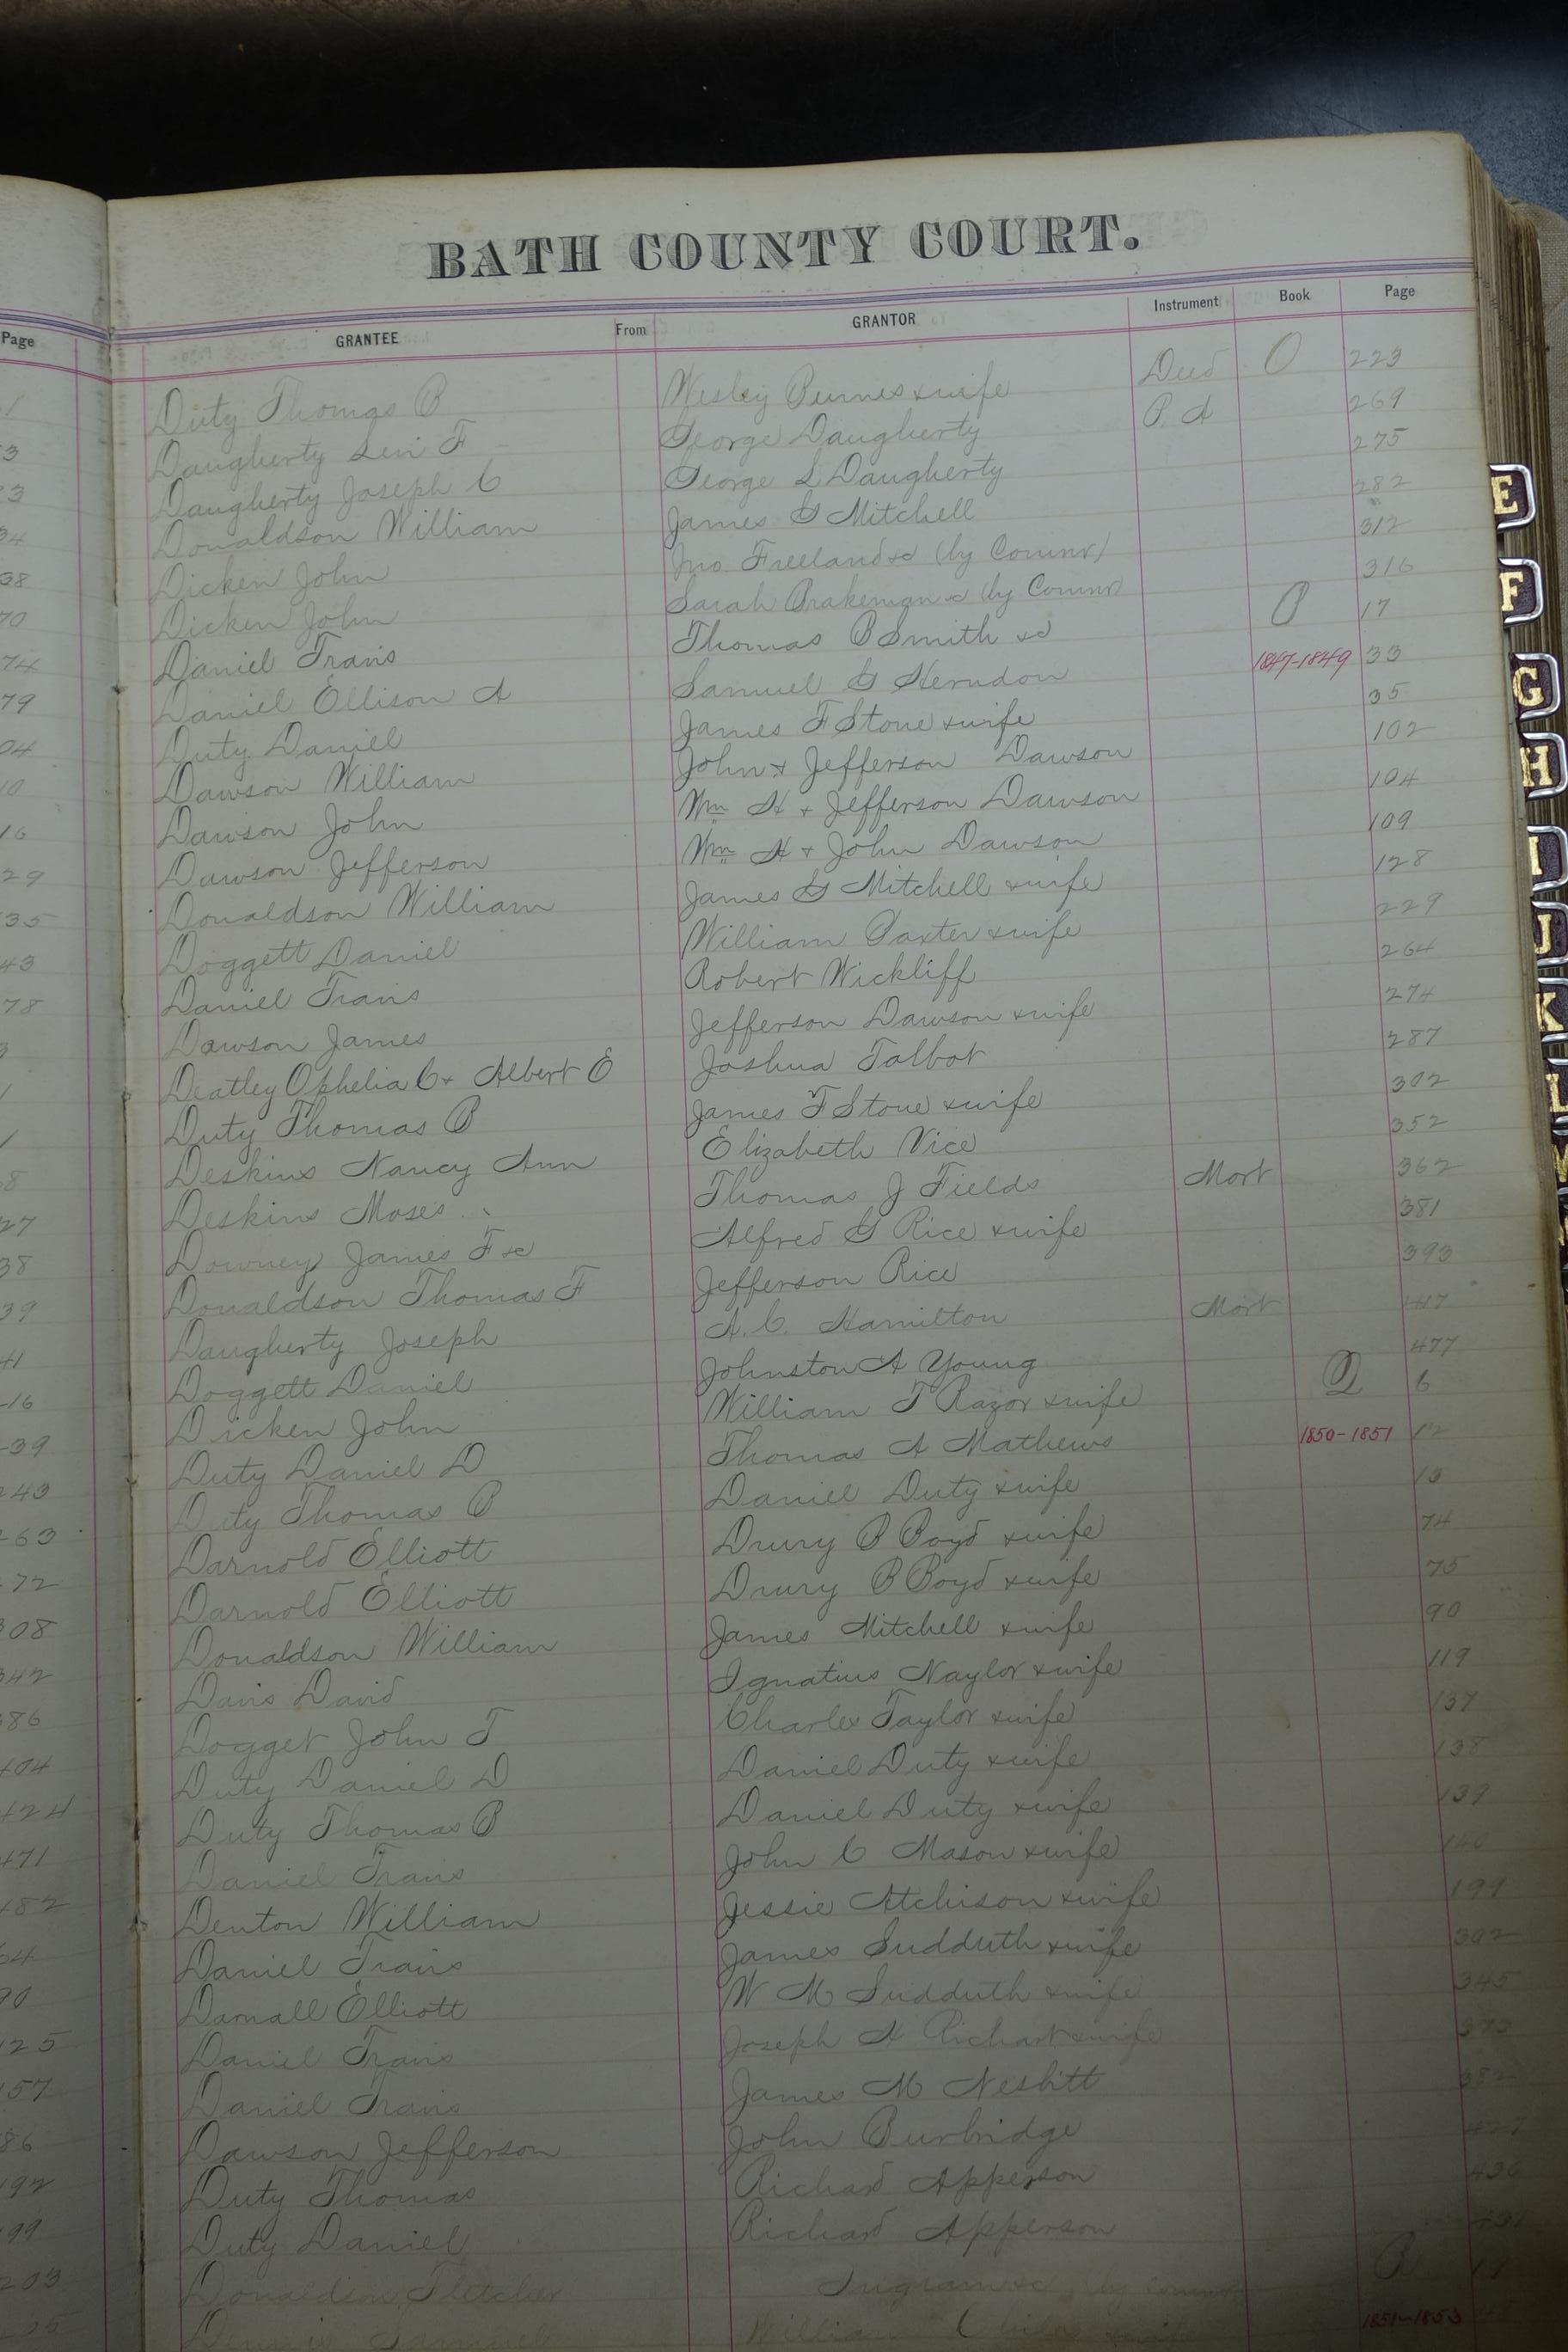 BATH COUNTY COURT.
Page GRANTEE From GRANTOR Instrument Book Page
Duty Thomas B Wesley Burnes & wife Deed O 223
Daugherty Levi F George Daugherty P. A 269
Daugherty Joseph C George L Daugherty 275
Donaldson William James G Mitchell 282
Dicken John Jno Freeland &c (by Commr) 312
Dicken John Sarah Brakeman &c (by Commr) 316
Daniel Travis Thomas B Smith &c P 17
Daniel Ellison A Samuel G Herndon 1847-1849 33
Duty Daniel James F Stone & wife 35
Dawson William John & Jefferson Dawson 102
Dawson John Wm H & Jefferson Dawson 104
Dawson Jefferson Wm H & John Dawson 109
Donaldson William James G Mitchell & wife 128
Doggett Daniel William Baxter & wife 229
Daniel Travis Robert Wickliff 264
Dawson James Jefferson Dawson & wife 274
Deatley Ophelia C & Albert E Joshua Talbot 287
Duty Thomas B James F Stone & wife 302
Deskins Nancy Ann Elizabeth Vice 352
Deskins Moses Thomas J Fields Mort 362
Downey James F &c Alfred G Rice & wife 381
Donaldson Thomas F Jefferson Rice 393
Daugherty Joseph A. C. Hamilton Mort 417
Doggett Daniel Johnston A Young 477
Dicken John William T Razor & wife Q 6
Duty Daniel D Thomas A Mathews 1850-1851 12
Duty Thomas B Daniel Duty & wife 13
Darnold Elliott Drury B Boyd & wife 74
Darnold Elliott Drury B Boyd & wife 75
Donaldson William James Mitchell & wife 90
Davis David Ignatius Naylor & wife 119
Dogget John T Charles Taylor & wife 137
Duty Daniel D Daniel Duty & wife 138
Duty Thomas B Daniel Duty & wife 139
Daniel Travis John C Mason & wife
Denton William Jessie Atchison & wife 199
Daniel Travis James Sudduth & wife 302
Darnall Elliott W M Sudduth & wife 345
Daniel Travis Joseph H Richart & wife
Daniel Travis James M Nesbitt
Dawson Jefferson John Burbridge
Duty Thomas Richard Apperson
Duty Daniel Richard Apperson
Donaldson Fletcher Ingram &c by commr R
William & wife 1851-1853
E
F
G
H
I
J
K
L
M